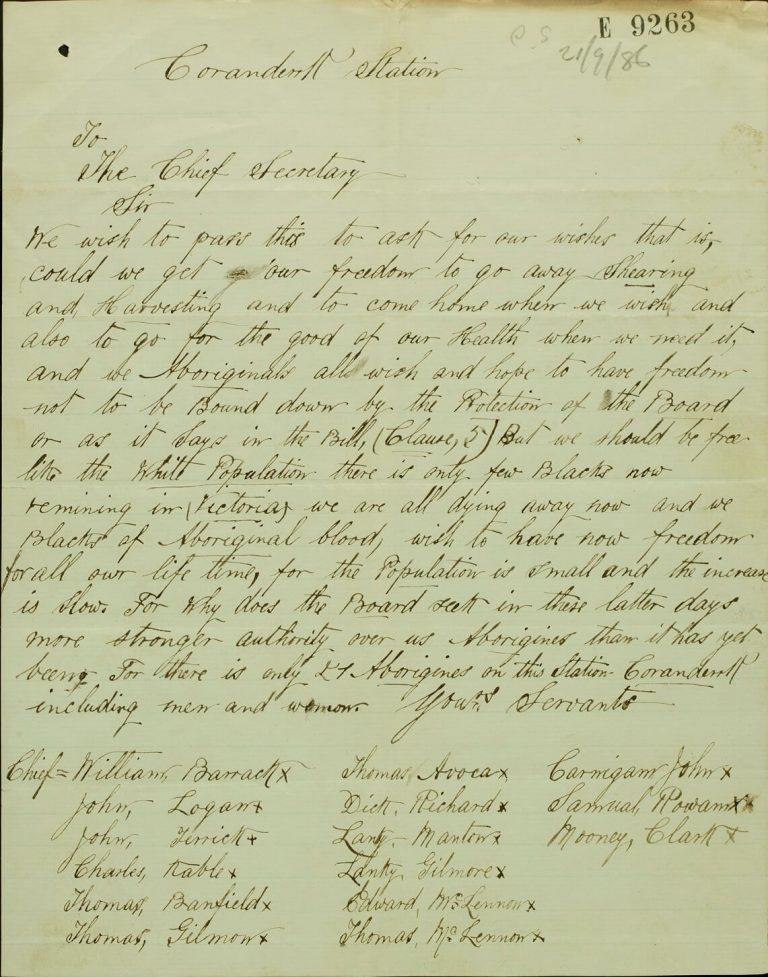 E 9263
21/9/86
Coranderrk Station
To
The Chief Secretary
Sir
We wish to pass this to ask for our wishes that is,
could we get our freedom to go away Shearing
and, Harvesting and to come home when we wish and
also to go for the good of our Health when we need it,
and we Aboriginals all wish and hope to have freedom
not to be Bound down by the Protection of the Board
or as it says in the Bill, (Clause, 5) But we should be free
like the White Population there is only few Blacks now
remining in (Victoria) we are all dying away now and we
Blacks of Aboriginal blood, wish to have now freedom
for all our life time, for the Population is small and the increase
is slow. For Why does the Board seek in these latter days
more stronger authority over us Aborigines than it has yet
been, For there is only 21 Aborigines on this Station Coranderrk
including men and women. Yours Servants
Chief = William, Barrack x Thomas, Avoca x Carnigam John x
John, Logan x Dick, Richard x Samual, Rowan x
John, Terrick x Lang,- Manton x Mooney, Clark x
Charles, Kable x Lanky, Gilmore x
Thomas, Banfield x Edward, McLennon x
Thomas, Gilmore x Thomas, McLennon x